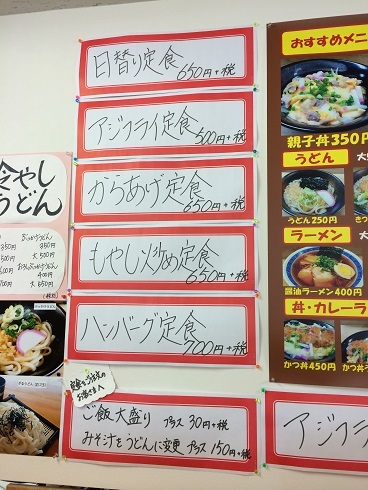 日替り定食
650円+税
アジフライ定食
500円+税
からあげ定食
650円+税
もやし炒め定食
650円+税
ハンバーグ定食
700円+税
ご飯大盛り プラス 30円+税
みそ汁をうどんに変更 プラス 150円+税
アジフラ
冷やし
うどん
350円
500円
400円
大 650円
おすすめメニ
親子丼350円
うどん
うどん250円
ラーメン
醤油ラーメン400円
丼・カレーラ
かつ丼450円